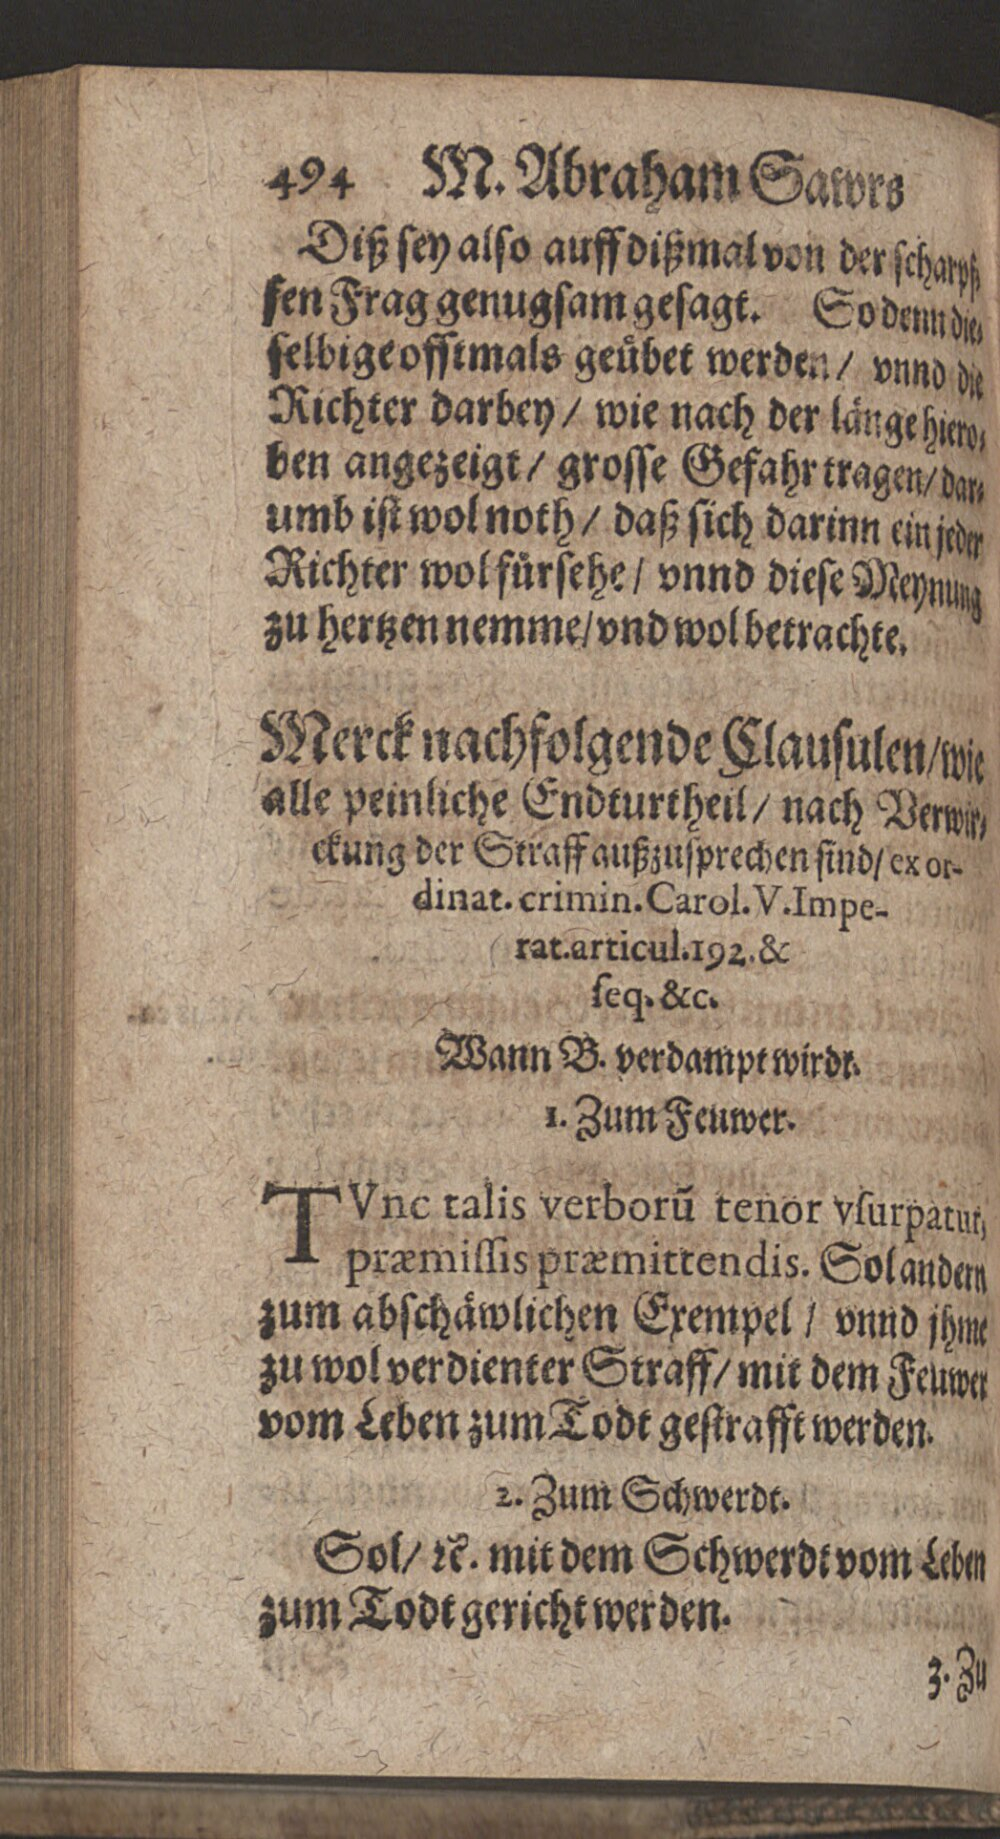 494 M. Abraham Sawrs
Diß sey also auff dißmal von der scharpf⸗
fen Frag genugsam gesagt. So denn die⸗
selbige offtmals geübet werden / vnnd die
Richter darbey / wie nach der länge hiero⸗
ben angezeigt / grosse Gefahr tragen / dar⸗
umb ist wol noth / daß sich darinn ein jeder
Richter wol fürsehe / vnnd diese Meynung
zu hertzen nemme / vnd wol betrachte.
Merck nachfolgende Clausulen / wie
alle peinliche Endturtheil / nach Verwir⸗
ckung der Straff außzusprechen sind / ex or-
dinat. crimin. Carol. V. Impe-
rat. articul. 192. &
seq. &c.
Wann B. verdampt wirdt.
1. Zum Feuwer.
TVnc talis verborū tenor vsurpatur,
præmissis præmittendis. Sol andern
zum abschäwlichen Exempel / vnnd jhme
zu wol verdienter Straff / mit dem Feuwer
vom Leben zum Todt gestrafft werden.
2. Zum Schwerdt.
Sol / ꝛc. mit dem Schwerdt vom Leben
zum Todt gericht werden.
3. Zu